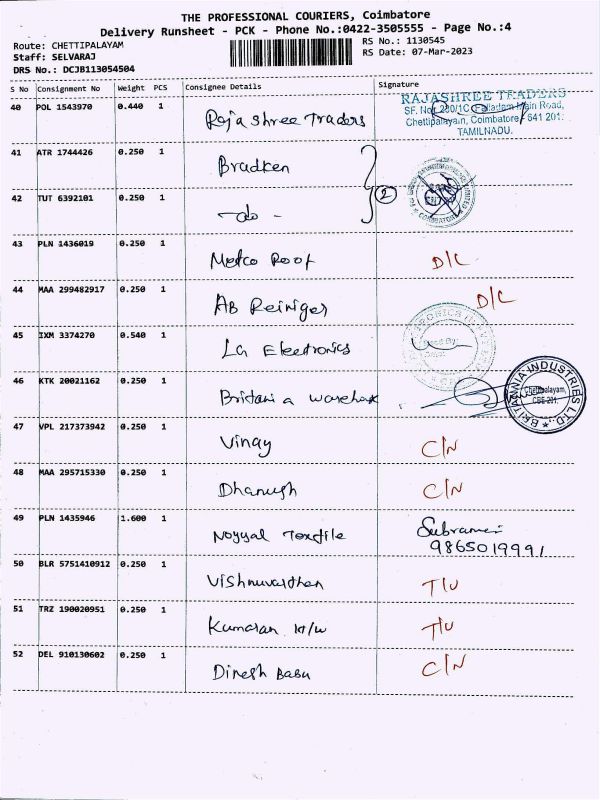 THE PROFESSIONAL COURIERS, Coimbatore
Delivery Runsheet - PCK - Phone No.:0422-3505555 - Page No.:4
Route: CHETTIPALAYAM
Staff: SELVARAJ
DRS No.: DCJB113054504
RS No.: 1130545
RS Date: 07-Mar-2023
S No Consignment No Weight PCS Consignee Details Signature
40 POL 1543970 0.440 1 Raja Shree Traders
RAJASHREE TRADERS
SF. No. 200/1C, Palladam Main Road,
Chettipalayam, Coimbatore - 641 201.
TAMILNADU.
41 ATR 1744426 0.250 1 Bradken
42 TUT 6392101 0.250 1 - do - 2
COIMBATORE
43 PLN 1436019 0.250 1 Metco Roof D/C
44 MAA 299482917 0.250 1 AB Reiniger D/C
45 IXM 3374270 0.540 1 La Electronics
46 KTK 20021162 0.250 1 Britania warehouse
BRITANNIA INDUSTRIES LTD.,
Chettipalayam,
CBE-201.
47 VPL 217373942 0.250 1 Vinay C/N
48 MAA 295715330 0.250 1 Dhanush C/N
49 PLN 1435946 1.600 1 Noyyal Textile
9865019991
50 BLR 5751410912 0.250 1 Vishnuvarthan T/U
51 TRZ 190020951 0.250 1 Kumaran H/W T/U
52 DEL 910130602 0.250 1 Dinesh Babu C/N